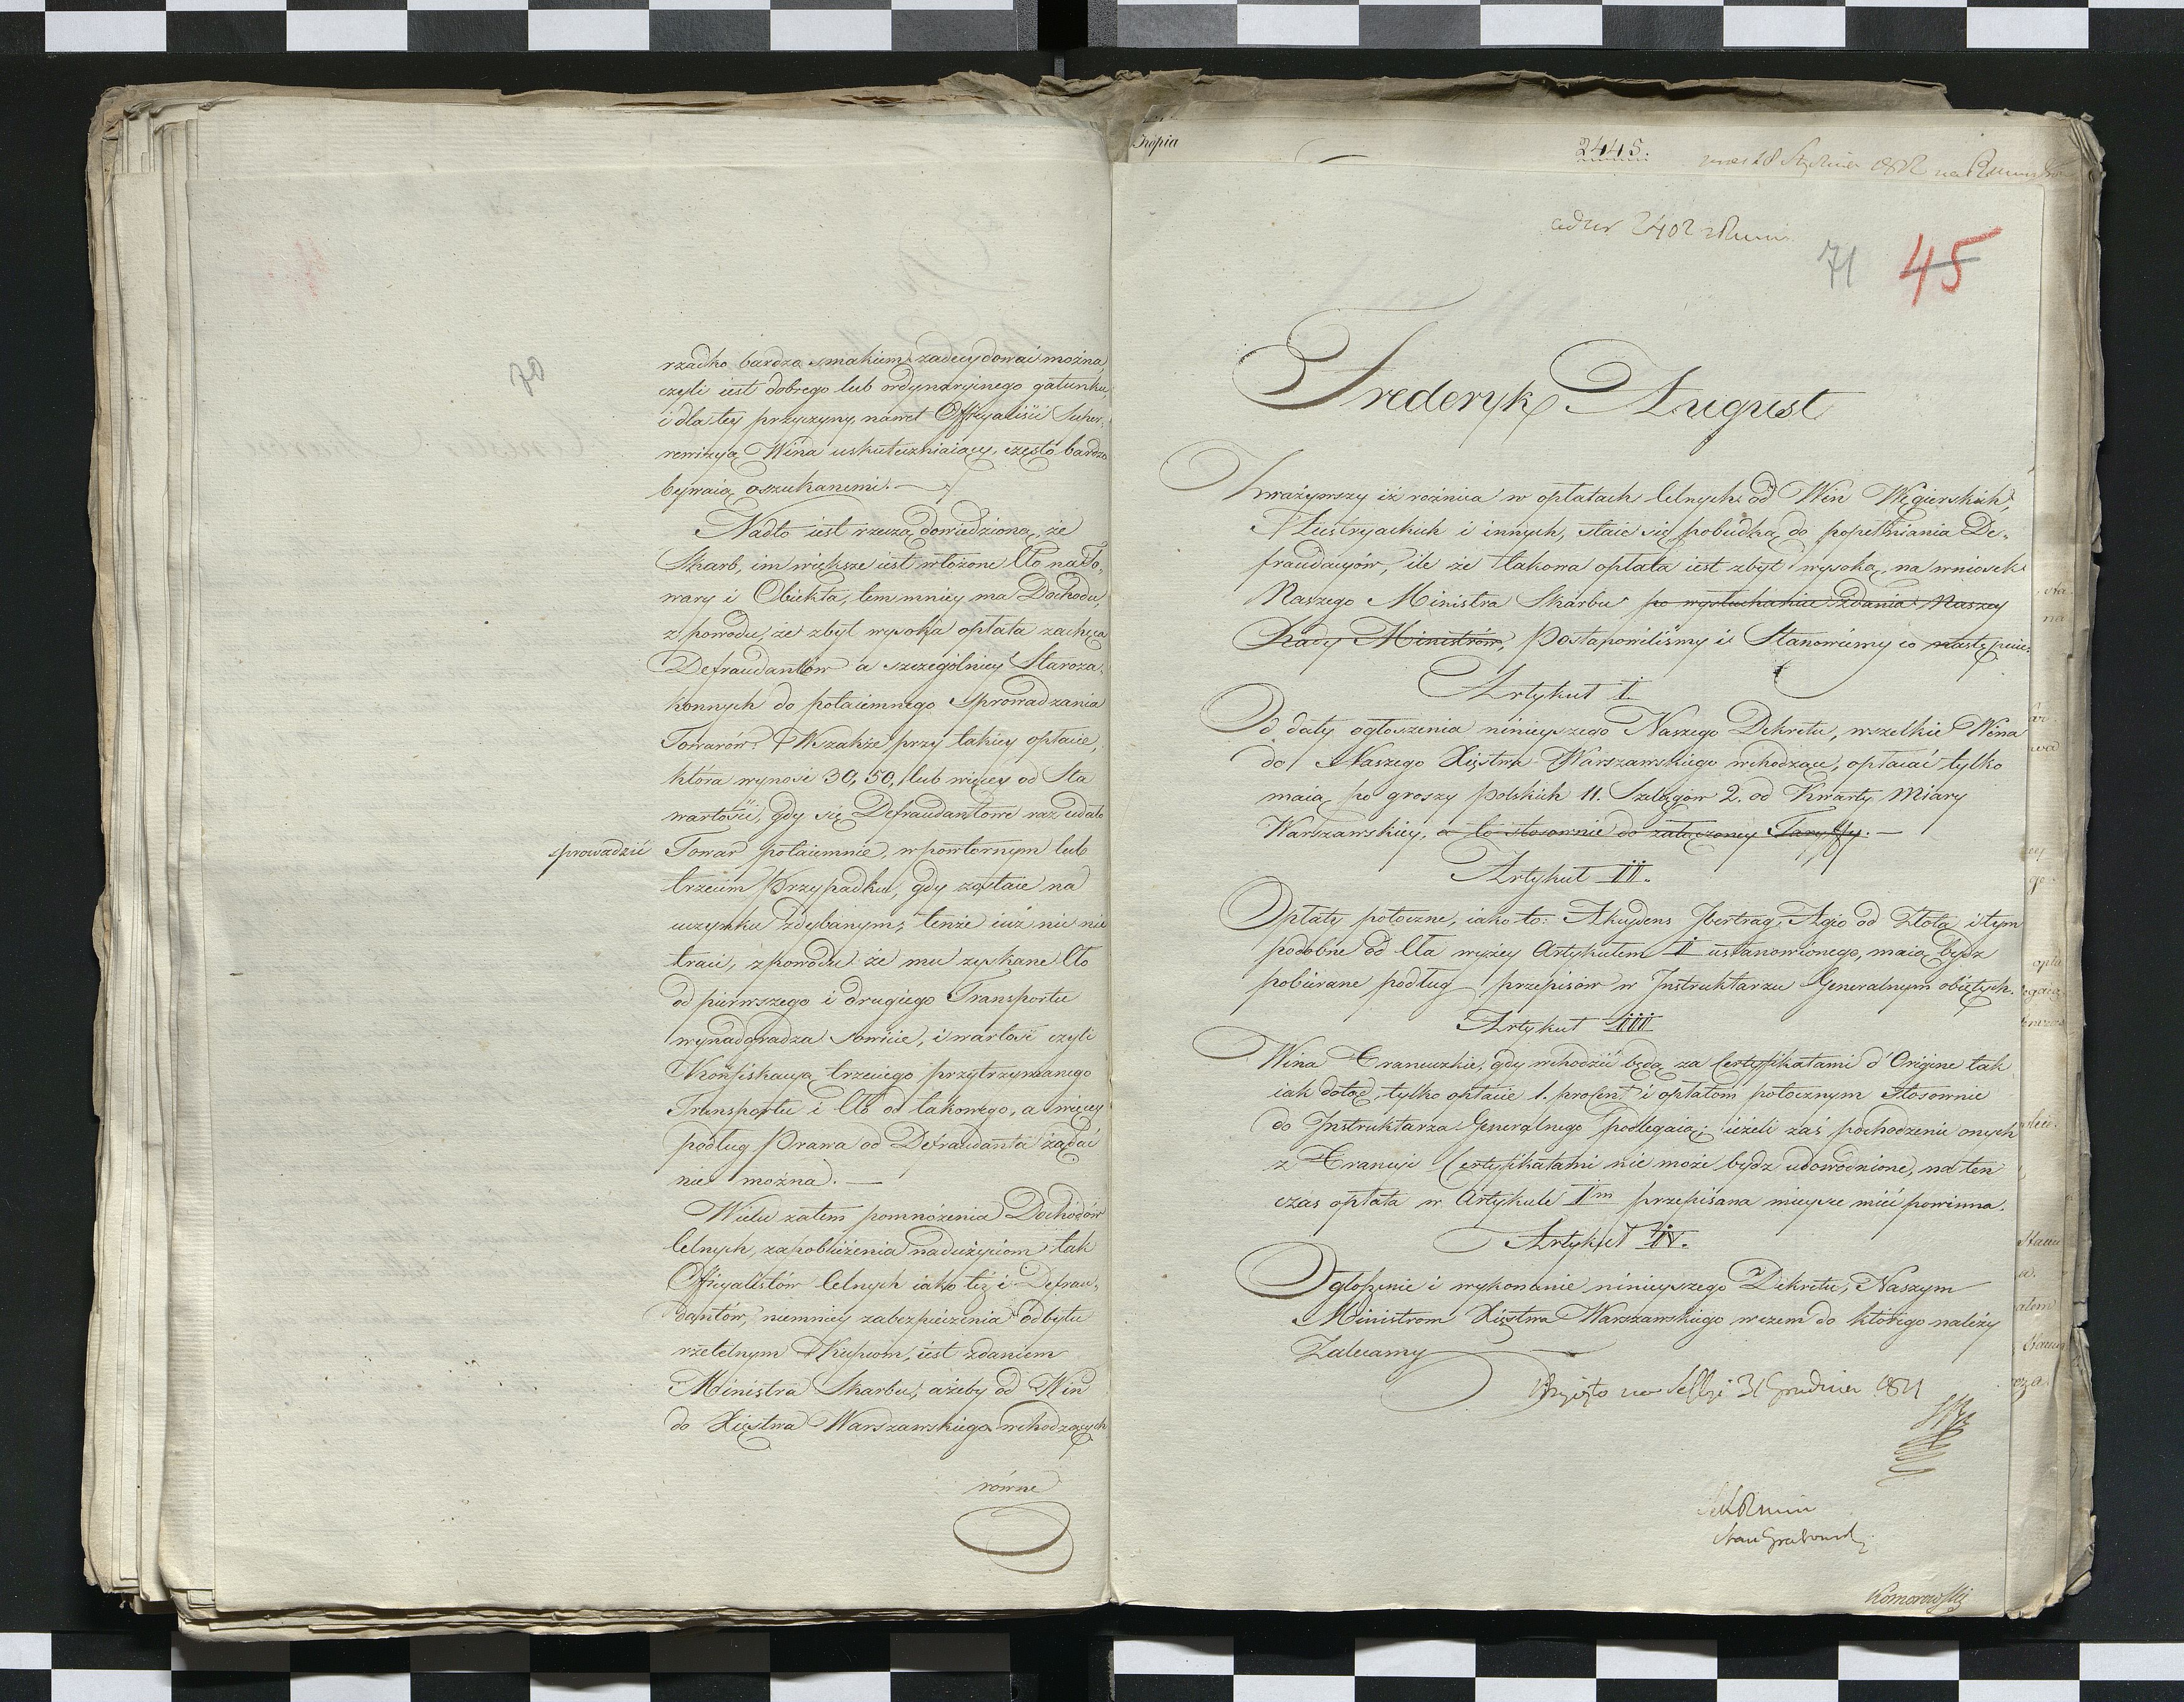 rzadko bardzo smakiem zadecydować można,
czyli iest dobrego lub ordynaryinego gatunku,
i dla tey przyczyny, nawet Officyaliści Super-
rewizyą Wina uskuteczniaiący, często bardzo
bywaią oszukanemi. —
Nadto iest rzeczą dowiedzioną, że
Skarb, im większe iest włożone Cło na To-
wary i Obiekta, tem mniey ma Dochodu,
z powodu, że zbyt wysoka opłata zachęca
Defraudantów a szczególniey Staroza-
konnych do potaiemnego sprowadzania
Towarów. Wszakże przy takiey opłacie,
która wynosi 30, 50, lub więcey od Sta
wartości, gdy się Defraudantowi raz udało
sprowadzić Towar potaiemnie, w powtornym lub
trzecim Przypadku, gdy zostaie na
uczynku zdybanym, tenże iuż nic nie
traci, z powodu że mu zyskane Cło
od pierwszego i drugiego Transportu
wynadgradza sowicie, i wartość czyli
Konfiskacyą trzeciego przytrzymanego
Transportu i Cło od takowego, a więcey
podług Prawa od Defraudanta żądać
nie można. —
W celu zatem pomnożenia Dochodów
Celnych, zapobieżenia nadużyciom tak
Officyalistów Celnych iako też i Defrau-
dantów, niemniey zabezpieczenia odbytu
rzetelnym Kupcom, iest zdaniem
Ministra Skarbu, ażeby od Win
do Xięstwa Warszawskiego wchodzących
równe
Kopia
2445.
71 45
Frederyk August
Zważywszy iż rożnica w opłatach Celnych od Win Węgierskich,
Austryackich i innych, staie się pobudką do popełniania De-
fraudacyów, ile że takowa opłata iest zbyt wysoką, na wniosek
Naszego Ministra Skarbu po wysłuchaniu Zdania Naszey
Rady Ministrów, Postanowiliśmy i Stanowiemy co następuie:
Artykuł I.
Od daty ogłoszenia ninieyszego Naszego Dekretu, wszelkie Wina
do Naszego Xięstwa Warszawskiego wchodzące, opłacać tylko
maią po groszy polskich 11. Szelągów 2. od Kwarty Miary
Warszawskiey, a to stosownie do załączoney Taryffy. —
Artykuł II.
Opłaty potoczne, iako to: Akcydens Ibertrag, Agio od Złota i tym
podobne od Cła wyżey Artykułem I ustanowionego, maią bydz
pobierane podług przepisów w Instruktarzu Generalnym obiętych.
Artykuł III
Wina Francuzkie, gdy wchodzić będą za Certyfikatami d'Origine tak
iak dotąd, tylko opłacie 1. procent i opłatom potocznym stosownie
do Instruktarza Generalnego podlegaią; ieżeli zaś pochodzenie onych
z Francyi Certyfikatami nie może bydz udowodnione, na ten
czas opłata w Artykule Im przepisana mieysce mieć powinna.
Artykuł IV.
Ogłoszenie i wykonanie ninieyszego Dekretu, Naszym
Ministrom Xięstwa Warszawskiego w czem do którego należy
Zalecamy
Przyięto na Sessyi 31 Grudnia 1811
Stan Grabowski
Komorowski